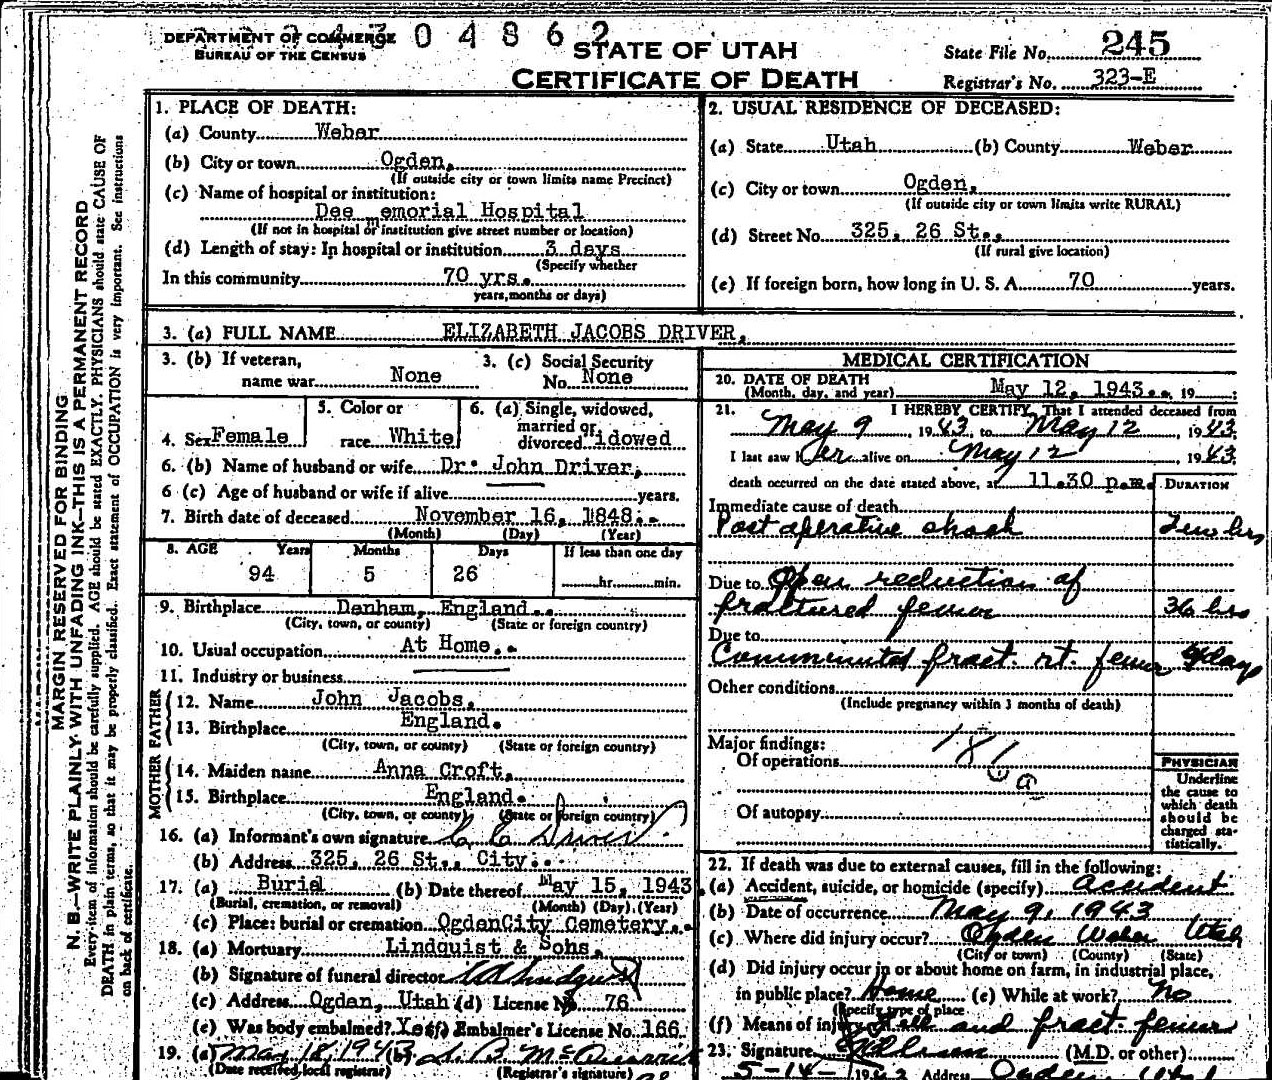 DEPARTMENT OF COMMERCE
BUREAU OF THE CENSUS
4 3 0 4 8 6 2
STATE OF UTAH
CERTIFICATE OF DEATH
State File No. 245
Registrar's No. 323-E
MARGIN RESERVED FOR BINDING
N. B.—WRITE PLAINLY WITH UNFADING INK—THIS IS A PERMANENT RECORD
Every item of information should be carefully supplied. AGE should be stated EXACTLY. PHYSICIANS should state CAUSE OF
DEATH in plain terms, so that it may be properly classified. Exact statement of OCCUPATION is very important. See instructions
on back of certificate.
1. PLACE OF DEATH:
(a) County Weber
(b) City or town Ogden,
(If outside city or town limits name Precinct)
(c) Name of hospital or institution:
Dee emorial Hospital
(If not in hospital or institution give street number or location)
(d) Length of stay: In hospital or institution 3 days
(Specify whether
In this community 70 yrs.
years, months or days)
2. USUAL RESIDENCE OF DECEASED:
(a) State Utah (b) County Weber
(c) City or town Ogden,
(If outside city or town limits write RURAL)
(d) Street No. 325, 26 St.,
(If rural give location)
(e) If foreign born, how long in U. S. A. 70 years.
3. (a) FULL NAME ELIZABETH JACOBS DRIVER,
3. (b) If veteran,
name war None
3. (c) Social Security
No. None
4. Sex Female
5. Color or
race White
6. (a) Single, widowed,
married or
divorced idowed
6. (b) Name of husband or wife Dr. John Driver,
6 (c) Age of husband or wife if alive years.
7. Birth date of deceased November 16, 1848.
(Month) (Day) (Year)
8. AGE Years Months Days If less than one day
94 5 26 hr. min.
9. Birthplace Denham, England.
(City, town, or county) (State or foreign country)
10. Usual occupation At Home.
11. Industry or business
FATHER
12. Name John Jacobs,
13. Birthplace England.
(City, town, or county) (State or foreign country)
MOTHER
14. Maiden name Anna Croft,
15. Birthplace England.
(City, town, or county) (State or foreign country)
16. (a) Informant's own signature C C Driver
(b) Address 325, 26 St., City.
17. (a) Burial (b) Date thereof May 15, 1943
(Burial, cremation, or removal) (Month) (Day) (Year)
(c) Place: burial or cremation OgdenCity Cemetery.
18. (a) Mortuary Lindquist & Sons,
(b) Signature of funeral director Lindquist
(c) Address Ogden, Utah (d) License No 76
(e) Was body embalmed? Yes (f) Embalmer's License No. 166
19. (a) May 18, 1943 (b)
(Date received local registrar) (Registrar's signature)
MEDICAL CERTIFICATION
20. DATE OF DEATH
(Month, day, and year) May 12, 1943. 19 ;
21. I HEREBY CERTIFY, That I attended deceased from
May 9, 1943, to May 12, 1943;
I last saw her alive on May 12, 1943;
death occurred on the date stated above, at 11.30 p.m.
DURATION
Immediate cause of death
Post operative shock Few hrs
Due to Open reduction of
fractured femur 36 hrs
Due to
Comminuted fract. rt. femur days
Other conditions
(Include pregnancy within 3 months of death)
Major findings:
Of operations 186 a
Of autopsy
PHYSICIAN
Underline
the cause to
which death
should be
charged sta-
tistically.
22. If death was due to external causes, fill in the following:
(a) Accident, suicide, or homicide (specify) Accident
(b) Date of occurrence May 9, 1943
(c) Where did injury occur? Ogden Weber Utah
(City or town) (County) (State)
(d) Did injury occur in or about home on farm, in industrial place,
in public place? Home (e) While at work? No
(Specify type of place
(f) Means of injury Fell and fract femur
23. Signature (M.D. or other)
5-14- 1943 Address Ogden Utah